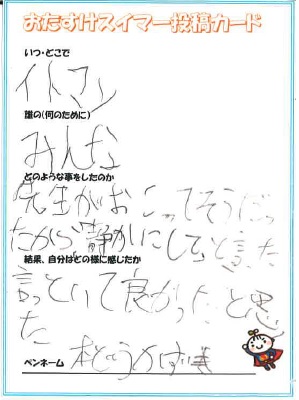 おたすけスイマー投稿カード
いつ・どこで
イトマン
誰の(何のために)
みんな
どのような事をしたのか
先生がおこってそうだっ
たから静かにしてと言った
結果、自分はどの様に感じたか
言っといて良かったと思っ
た
ペンネーム